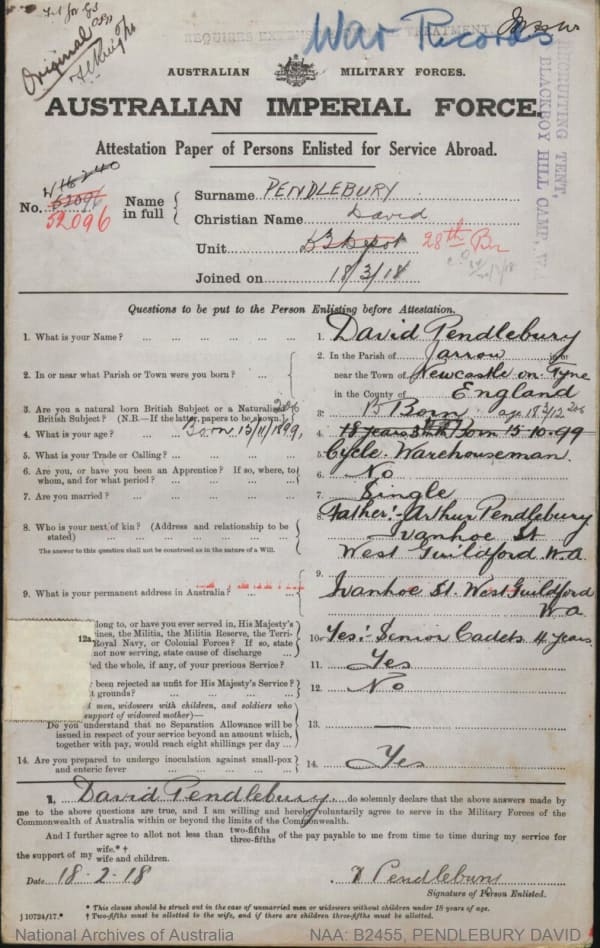 Original
War Records
RECRUITING TENT,
BLACKBOY HILL CAMP, W.
AUSTRALIAN MILITARY FORCES.
AUSTRALIAN IMPERIAL FORCE.
Attestation Paper of Persons Enlisted for Service Abroad.
No. 52096
52096
Name in full { Surname PENDLEBURY
Christian Name David
Unit Depot 28th Bn
Joined on 18/3/18
Questions to be put to the Person Enlisting before Attestation.
1. What is your Name? ... 1. David Pendlebury
2. In or near what Parish or Town were you born? ... 2. In the Parish of Jarrow
near the Town of Newcastle on Tyne
in the County of England
3. Are you a natural born British Subject or a Naturalised
British Subject? (N.B.—If the latter, papers to be shown.) 3. Born
4. What is your age? Born 15/11/1899, 4. 18 years Born 15-10-99
5. What is your Trade or Calling? ... 5. Cycle Warehouseman
6. Are you, or have you been an Apprentice? If so, where, to
whom, and for what period? ... 6. No
7. Are you married? ... 7. Single
8. Who is your next of kin? (Address and relationship to be
stated) 8. Father:- Arthur Pendlebury
Ivanhoe St
West Guildford W.A
The answer to this question shall not be construed as in the nature of a Will.
9. What is your permanent address in Australia? ... 9. Ivanhoe St. West Guildford
W.A
12a
long to, or have you ever served in, His Majesty's
ines, the Militia, the Militia Reserve, the Terri-
Royal Navy, or Colonial Forces? If so, state
not now serving, state cause of discharge 10. Yes:- Senior Cadets 4 years
ted the whole, if any, of your previous Service? 11. Yes
been rejected as unfit for His Majesty's Service?
t grounds? ... 12. No
d men, widowers with children, and soldiers who
support of widowed mother)—
Do you understand that no Separation Allowance will be
issued in respect of your service beyond an amount which,
together with pay, would reach eight shillings per day ... 13. —
14. Are you prepared to undergo inoculation against small-pox
and enteric fever ... 14. Yes
I, David Pendlebury do solemnly declare that the above answers made by
me to the above questions are true, and I am willing and hereby voluntarily agree to serve in the Military Forces of the
Commonwealth of Australia within or beyond the limits of the Commonwealth.
And I further agree to allot not less than two-fifths three-fifths of the pay payable to me from time to time during my service for
the support of my wife.*† wife and children.
Date 18-2-18 Pendlebury
Signature of Person Enlisted.
* This clause should be struck out in the case of unmarried men or widowers without children under 18 years of age.
J 10724/17.* † Two-fifths must be allotted to the wife, and if there are children three-fifths must be allotted.
National Archives of Australia NAA: B2455, PENDLEBURY DAVID